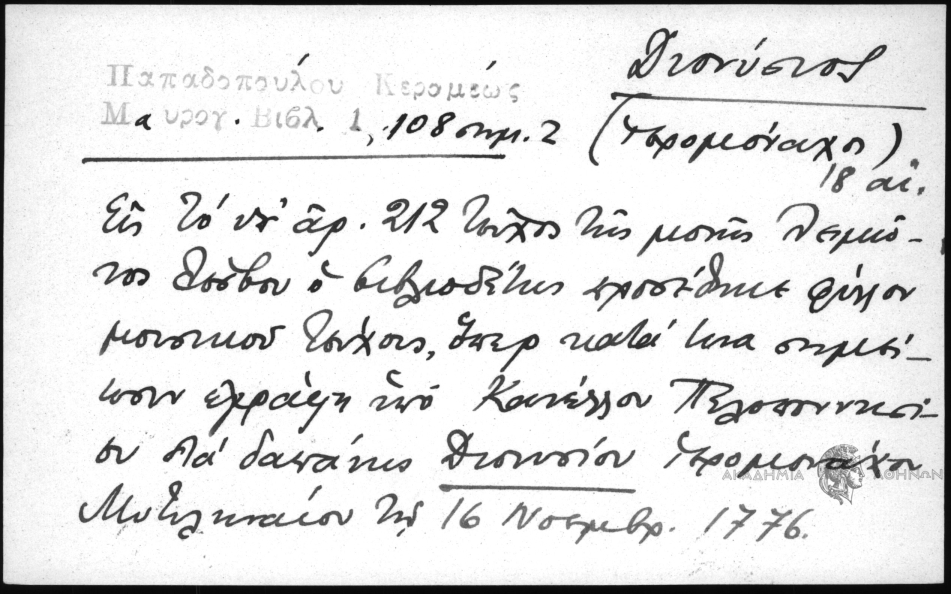 Διονύσιος
Παπαδοπούλου Κεραμέως
Μαυρογ. Βιβλ. 1, 108 σημ. 2
(ἱερομόναχος)
18 αἰ.
Εἰς τό ὑπ' ἀρ. 212 τεῦχος τῆς μονῆς Λειμῶ-
νος Λέσβου ὁ βιβλιοδέτης προσέθηκε φύλλον
μουσικοῦ τεύχους, ὅπερ κατά τινα σημεί-
ωσιν ἐγράφη ὑπό Κανέλλου Πελοποννησί-
ου διά δαπάνης Διονυσίου ἱερομονάχου
Μυτιληναίου τῇ 16 Νοεμβρ. 1776.
ΑΚΑΔΗΜΙΑ ΑΘΗΝΩΝ